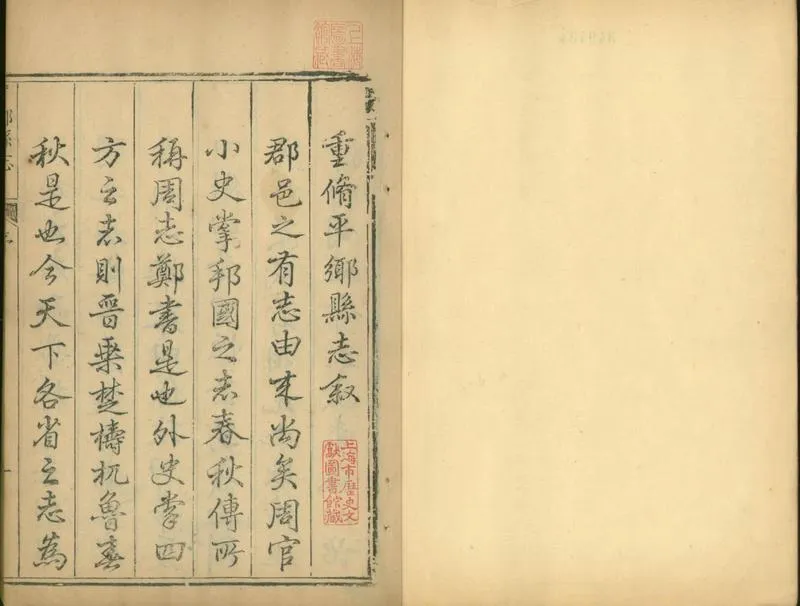 重脩平鄉縣志叙
郡邑之有志由來尚矣周官
小史掌邦國之志春秋傳所
稱周志鄭書是也外史掌四
方之志則晉乗楚檮杌魯春
秋是也今天下各省之志為
上海市歷史文
獻圖書館藏
鄉縣志